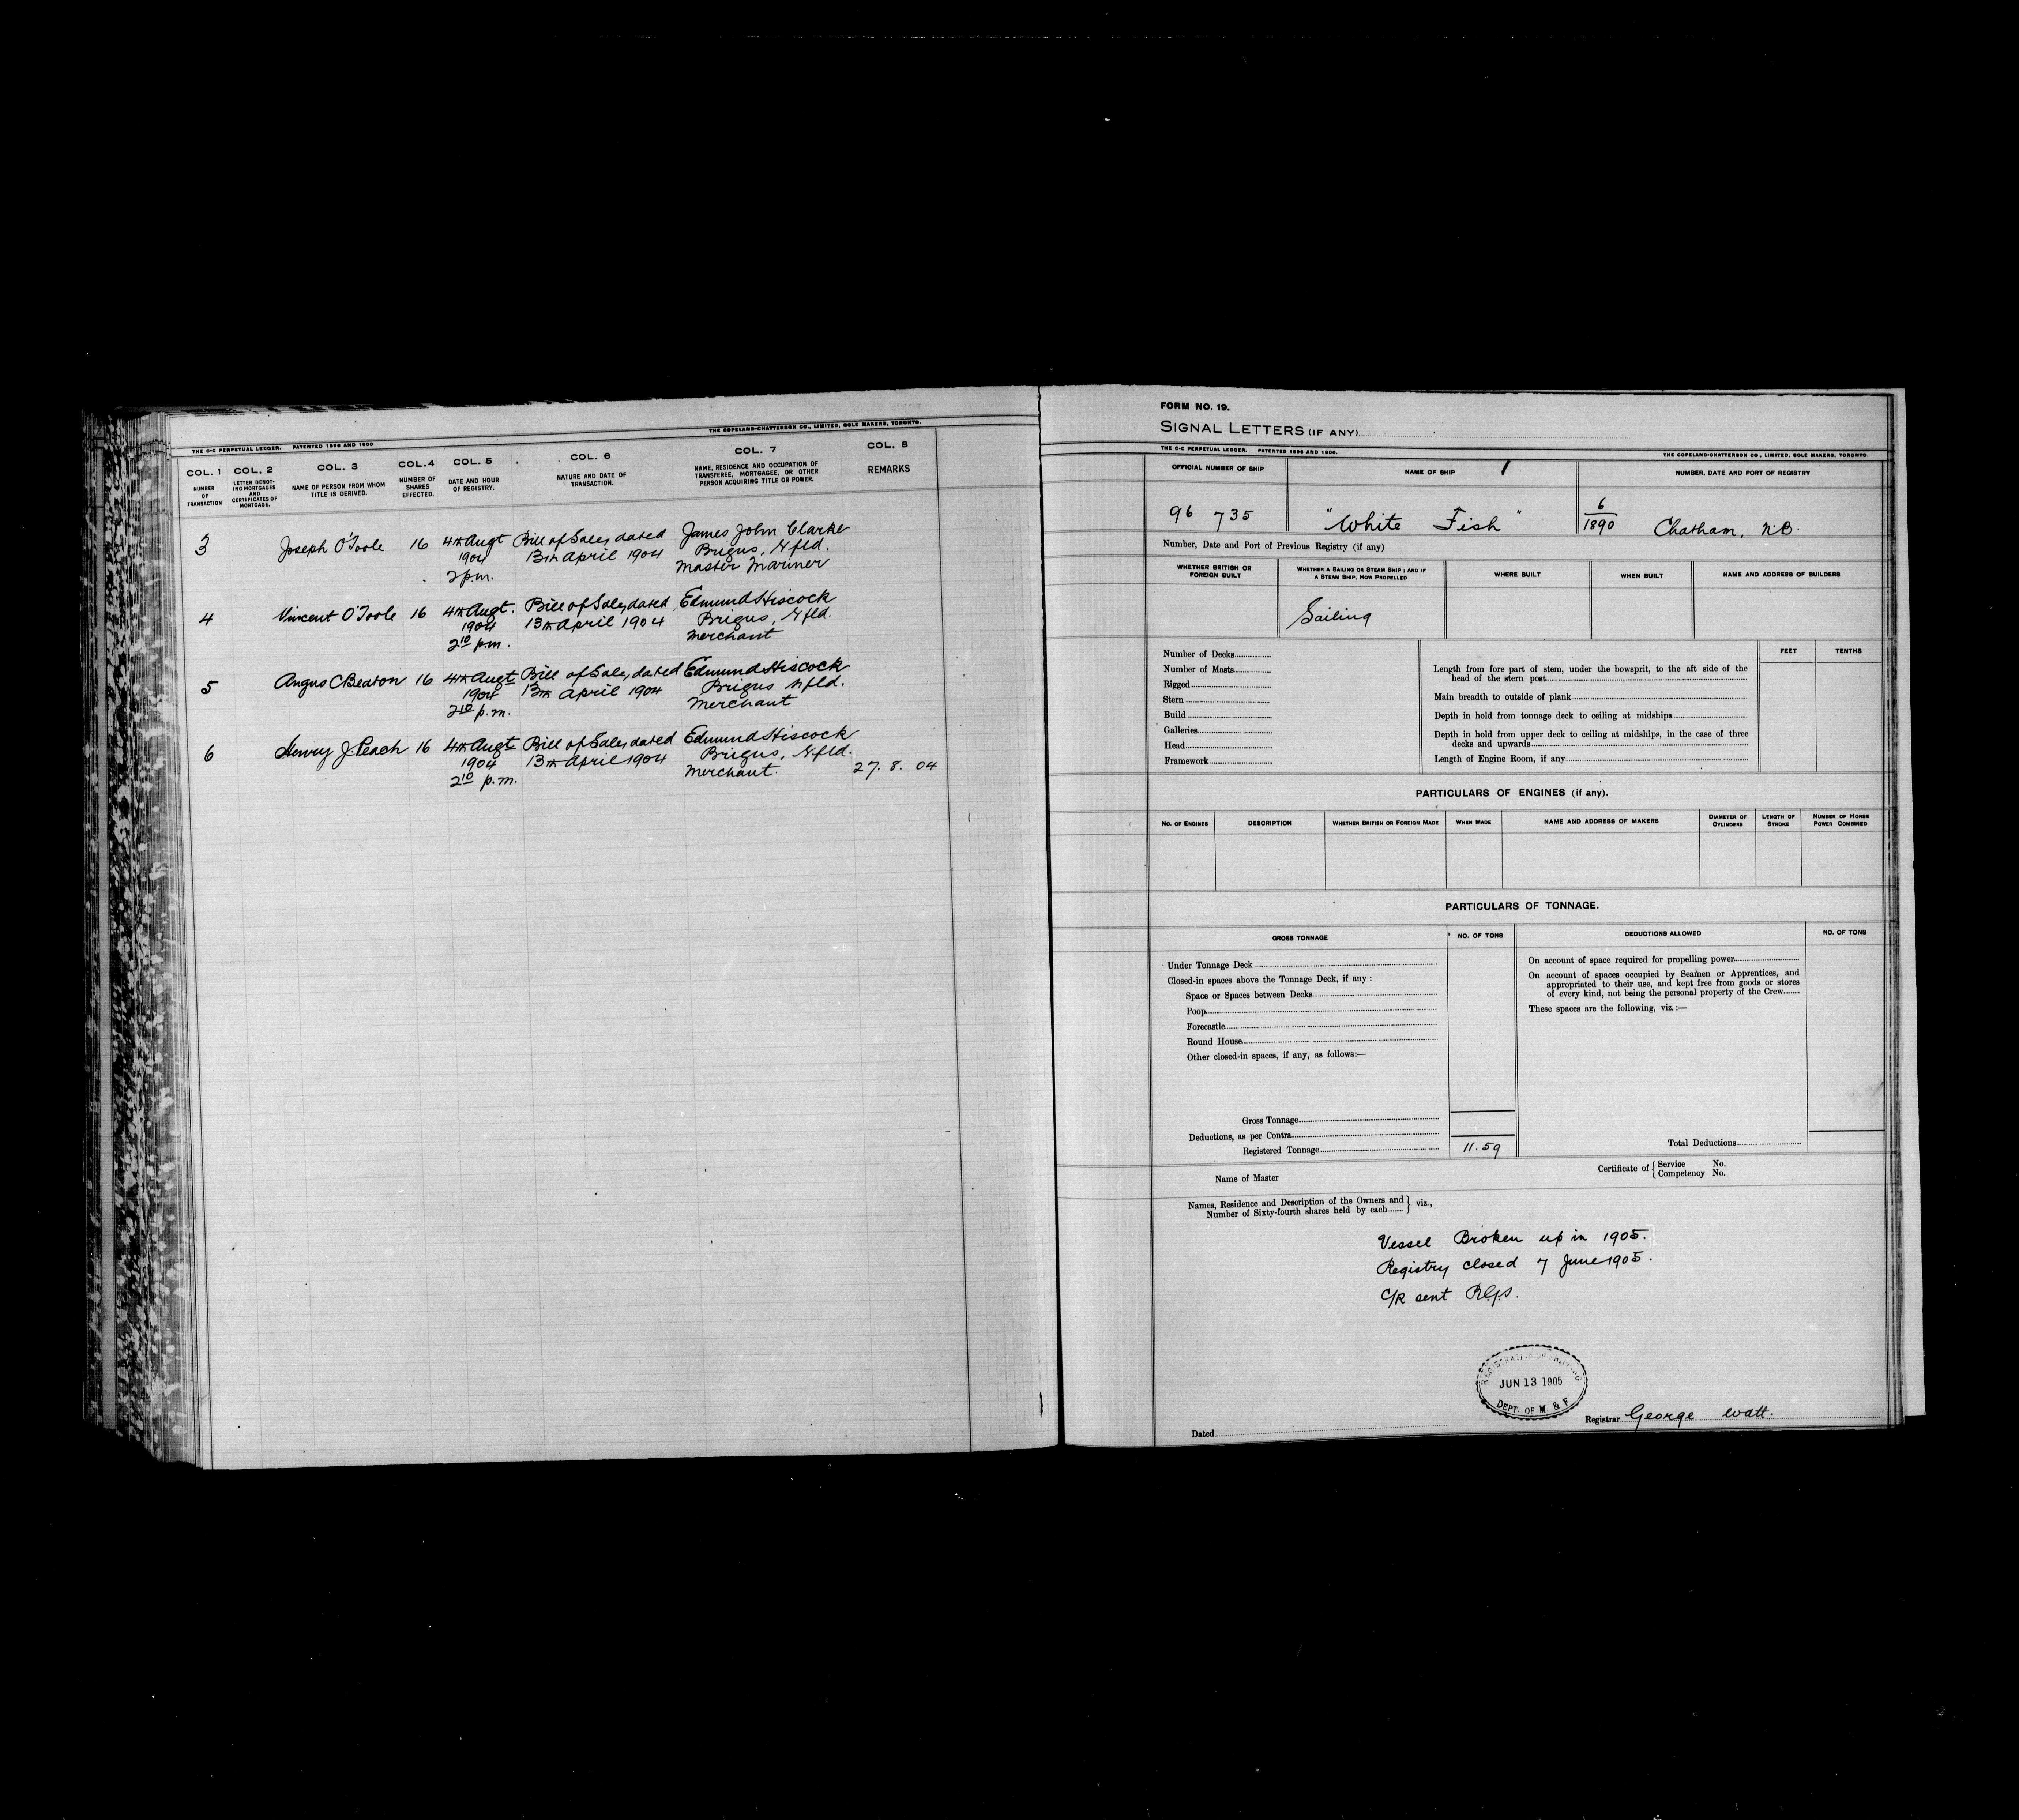 THE C-C PERPETUAL LEDGER. PATENTED 1896 AND 1900
THE COPELAND-CHATTERSON CO., LIMITED, SOLE MAKERS, TORONTO.
COL. 1 COL. 2 COL. 3 COL. 4 COL. 5 COL. 6 COL. 7 COL. 8
NUMBER OF TRANSACTION
LETTER DENOTING MORTGAGES AND CERTIFICATES OF MORTGAGE.
NAME OF PERSON FROM WHOM TITLE IS DERIVED.
NUMBER OF SHARES EFFECTED.
DATE AND HOUR OF REGISTRY.
NATURE AND DATE OF TRANSACTION.
NAME, RESIDENCE AND OCCUPATION OF TRANSFEREE, MORTGAGEE, OR OTHER PERSON ACQUIRING TITLE OR POWER.
REMARKS
3 Joseph O'Toole 16 4th Augt Bill of Sale, dated James John Clarke
1904 13th April 1904 Brigus, Nfld.
2 p.m. Master Mariner
4 Vincent O'Toole 16 4th Augt. Bill of Sale, dated Edmund Hiscock
1904 13th April 1904 Brigus, Nfld.
2 10 p.m. Merchant
5 Angus C Beaton 16 4th Augt Bill of Sale, dated Edmund Hiscock
1904 13th April 1904 Brigus Nfld.
2 10 p.m. Merchant
6 Henry J. Peach 16 4th Augt Bill of Sale, dated Edmund Hiscock
1904 13th April 1904 Brigus, Nfld.
2 10 p.m. Merchant. 27. 8. 04
FORM NO. 19.
SIGNAL LETTERS (IF ANY)
THE C-C PERPETUAL LEDGER. PATENTED 1896 AND 1900.
THE COPELAND-CHATTERSON CO., LIMITED, SOLE MAKERS, TORONTO.
OFFICIAL NUMBER OF SHIP NAME OF SHIP NUMBER, DATE AND PORT OF REGISTRY
96 735 "White Fish" 6/1890 Chatham, N.B.
Number, Date and Port of Previous Registry (if any)
WHETHER BRITISH OR FOREIGN BUILT
WHETHER A SAILING OR STEAM SHIP; AND IF A STEAM SHIP, HOW PROPELLED
WHERE BUILT WHEN BUILT NAME AND ADDRESS OF BUILDERS
Sailing
FEET TENTHS
Number of Decks
Number of Masts
Rigged
Stern
Build
Galleries
Head
Framework
Length from fore part of stem, under the bowsprit, to the aft side of the
head of the stern post
Main breadth to outside of plank
Depth in hold from tonnage deck to ceiling at midships
Depth in hold from upper deck to ceiling at midships, in the case of three
decks and upwards
Length of Engine Room, if any
PARTICULARS OF ENGINES (if any).
NO. OF ENGINES DESCRIPTION WHETHER BRITISH OR FOREIGN MADE WHEN MADE NAME AND ADDRESS OF MAKERS DIAMETER OF CYLINDERS LENGTH OF STROKE NUMBER OF HORSE POWER COMBINED
PARTICULARS OF TONNAGE.
GROSS TONNAGE NO. OF TONS DEDUCTIONS ALLOWED NO. OF TONS
Under Tonnage Deck
Closed-in spaces above the Tonnage Deck, if any :
Space or Spaces between Decks
Poop
Forecastle
Round House
Other closed-in spaces, if any, as follows:—
Gross Tonnage
Deductions, as per Contra
Registered Tonnage 11.59
On account of space required for propelling power
On account of spaces occupied by Seamen or Apprentices, and
appropriated to their use, and kept free from goods or stores
of every kind, not being the personal property of the Crew
These spaces are the following, viz.:—
Total Deductions
Name of Master
Certificate of { Service No.
{ Competency No.
Names, Residence and Description of the Owners and
Number of Sixty-fourth shares held by each } viz.,
Vessel Broken up in 1905.
Registry closed 7 June 1905.
C/R sent R.G.S.
REGISTRATION OF SHIPPING
JUN 13 1905
DEPT. OF M & F
Registrar George Watt.
Dated